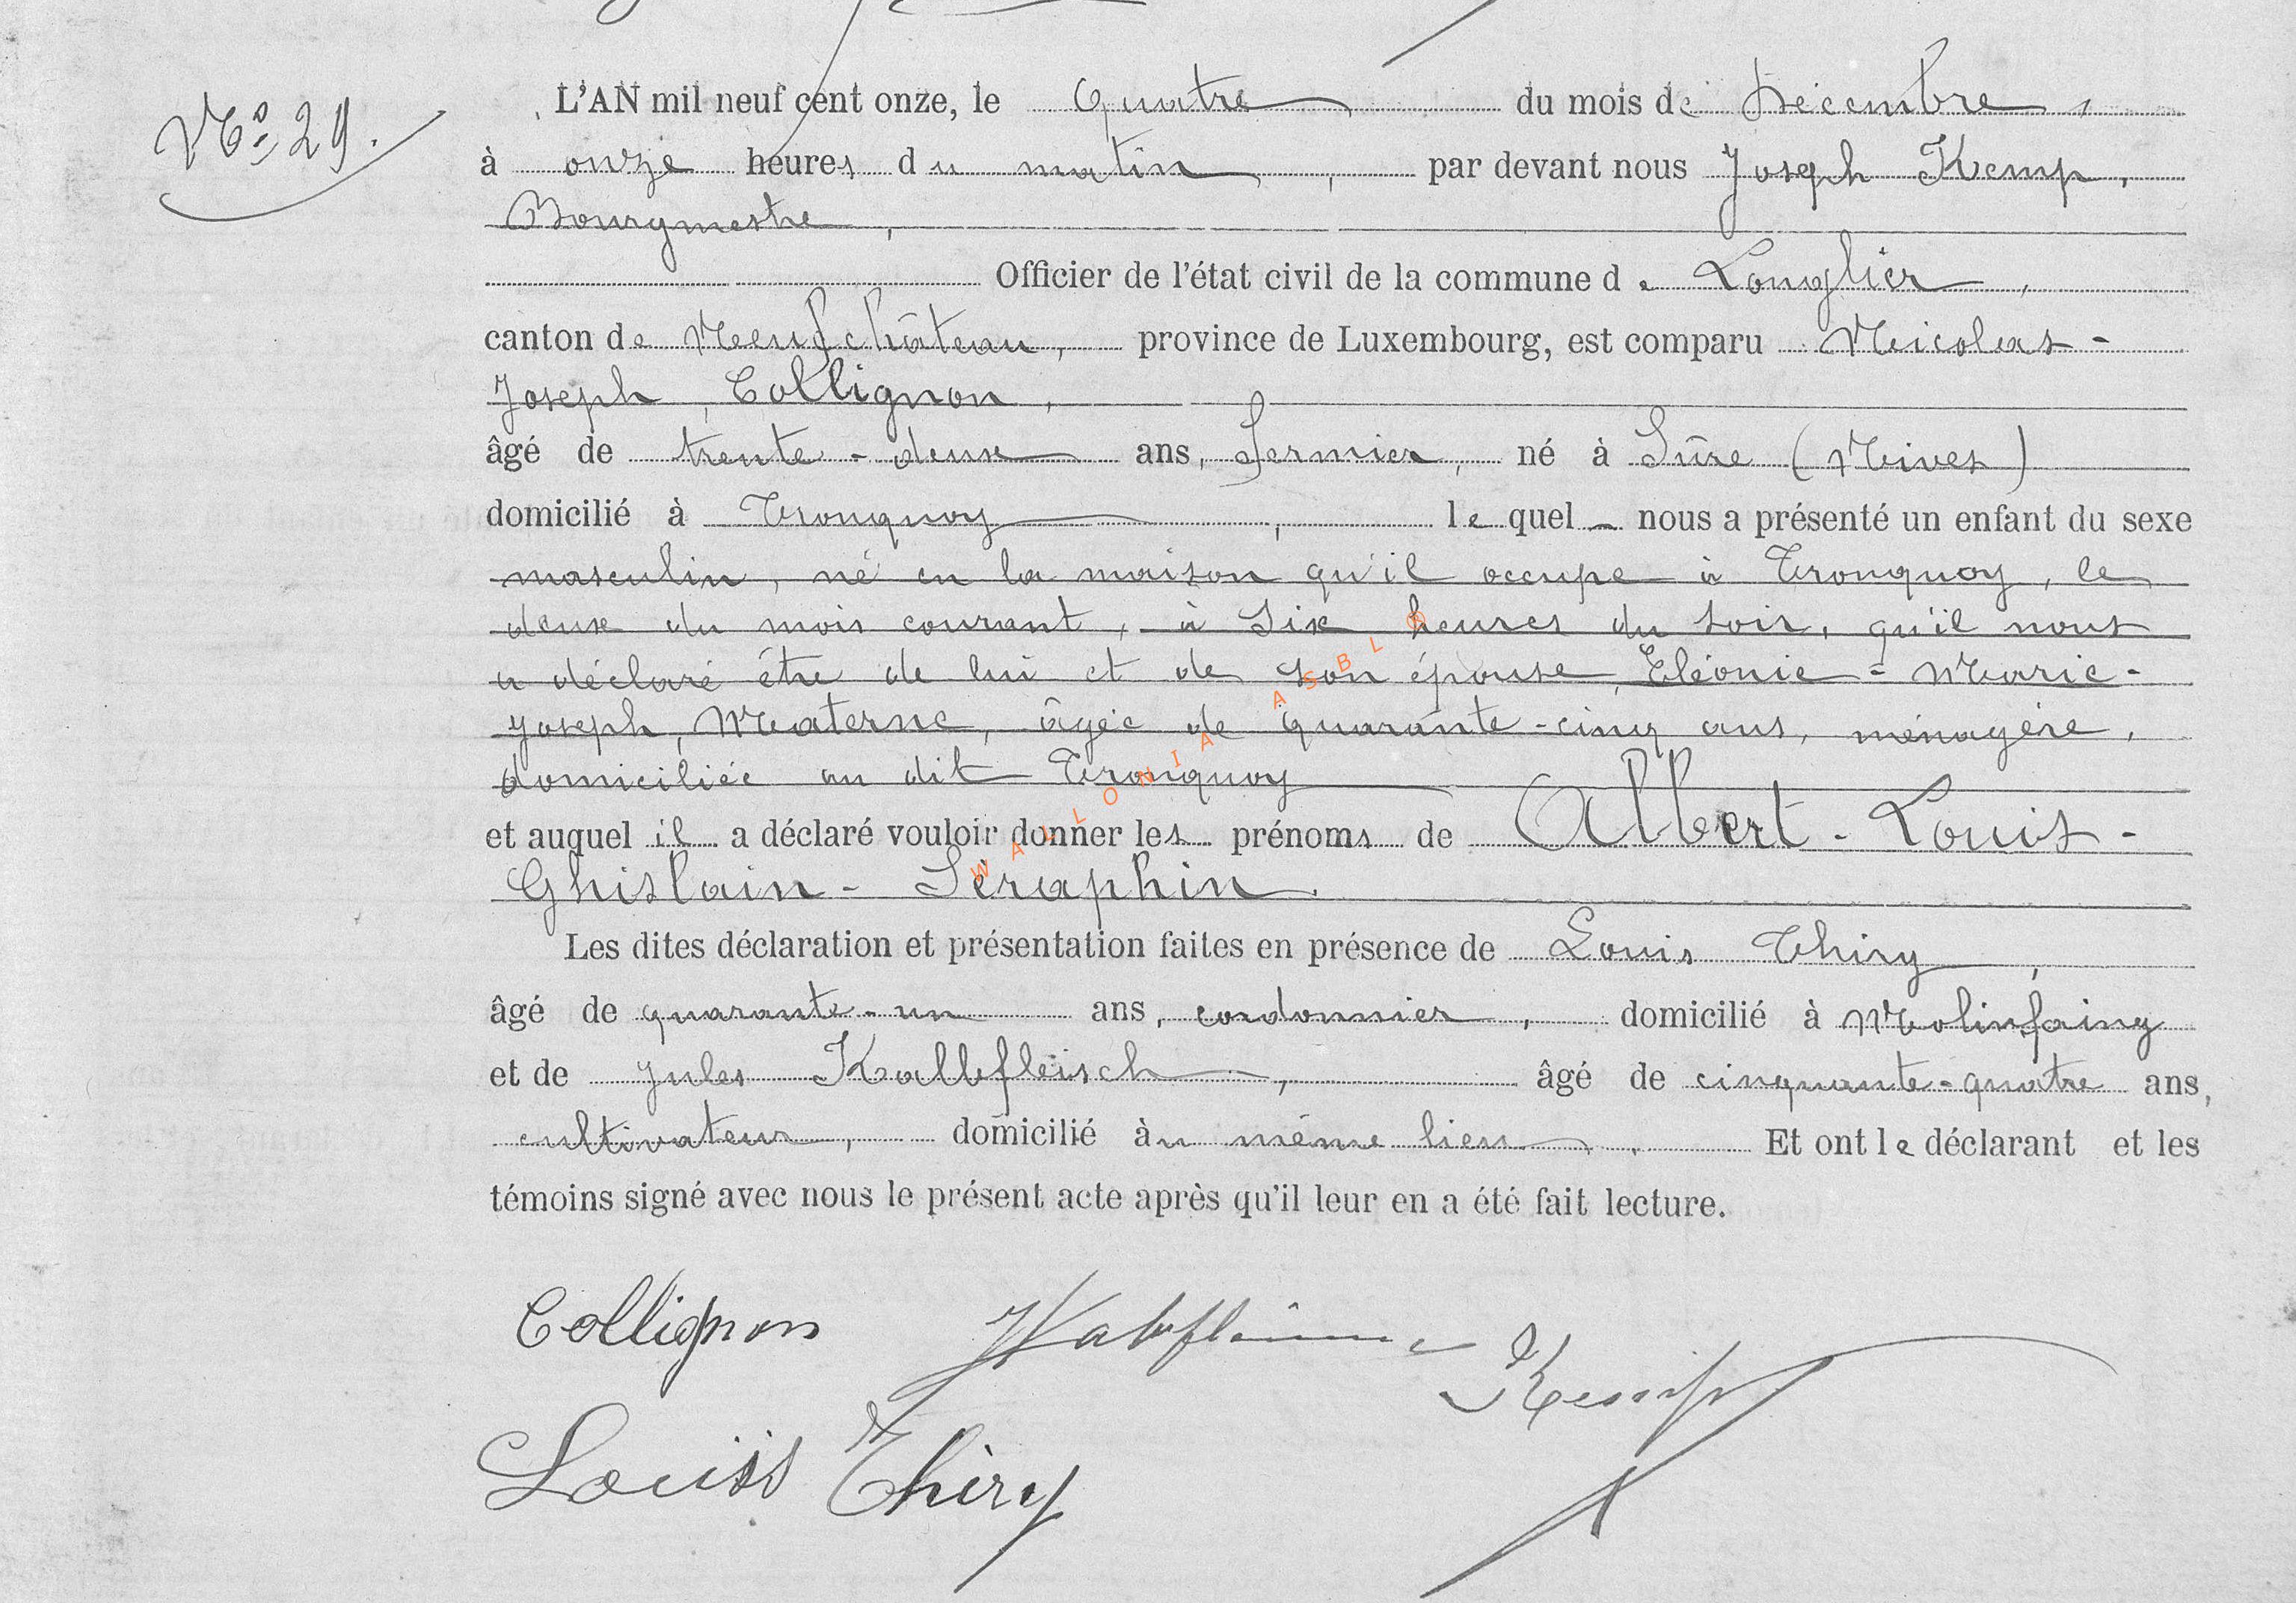 N° 29.
L'AN mil neuf cent onze, le Quatre du mois de Décembre,
à onze heures du matin, par devant nous Joseph Kemp,
Bourgmestre,
Officier de l'état civil de la commune de Longlier,
canton de Neufchâteau, province de Luxembourg, est comparu Nicolas-
Joseph, Collignon,
âgé de trente-deux ans, fermier, né à Sûre (Nives)
domicilié à Tronquoy, le quel - nous a présenté un enfant du sexe
masculin, né en la maison qu'il occupe à Tronquoy, le
deux du mois courant, à Six heures du soir, qu'il nous
a déclaré être de lui et de son épouse, Eléonie-Marie-
Joseph, Materne, âgée de quarante-cinq ans, ménagère,
domiciliée au dit Tronquoy
et auquel il a déclaré vouloir donner les prénoms de Albert-Louis-
Ghislain-Séraphin.
Les dites déclaration et présentation faites en présence de Louis Thiry,
âgé de quarante-un ans, cordonnier, domicilié à Molinfaing
et de Jules Kalbfleisch, âgé de cinquante-quatre ans,
cultivateur, domicilié àu même lieu. Et ont le déclarant et les
témoins signé avec nous le présent acte après qu'il leur en a été fait lecture.
Collignon
Kemp
Louis Thiry
WALLONIA ASBL ®